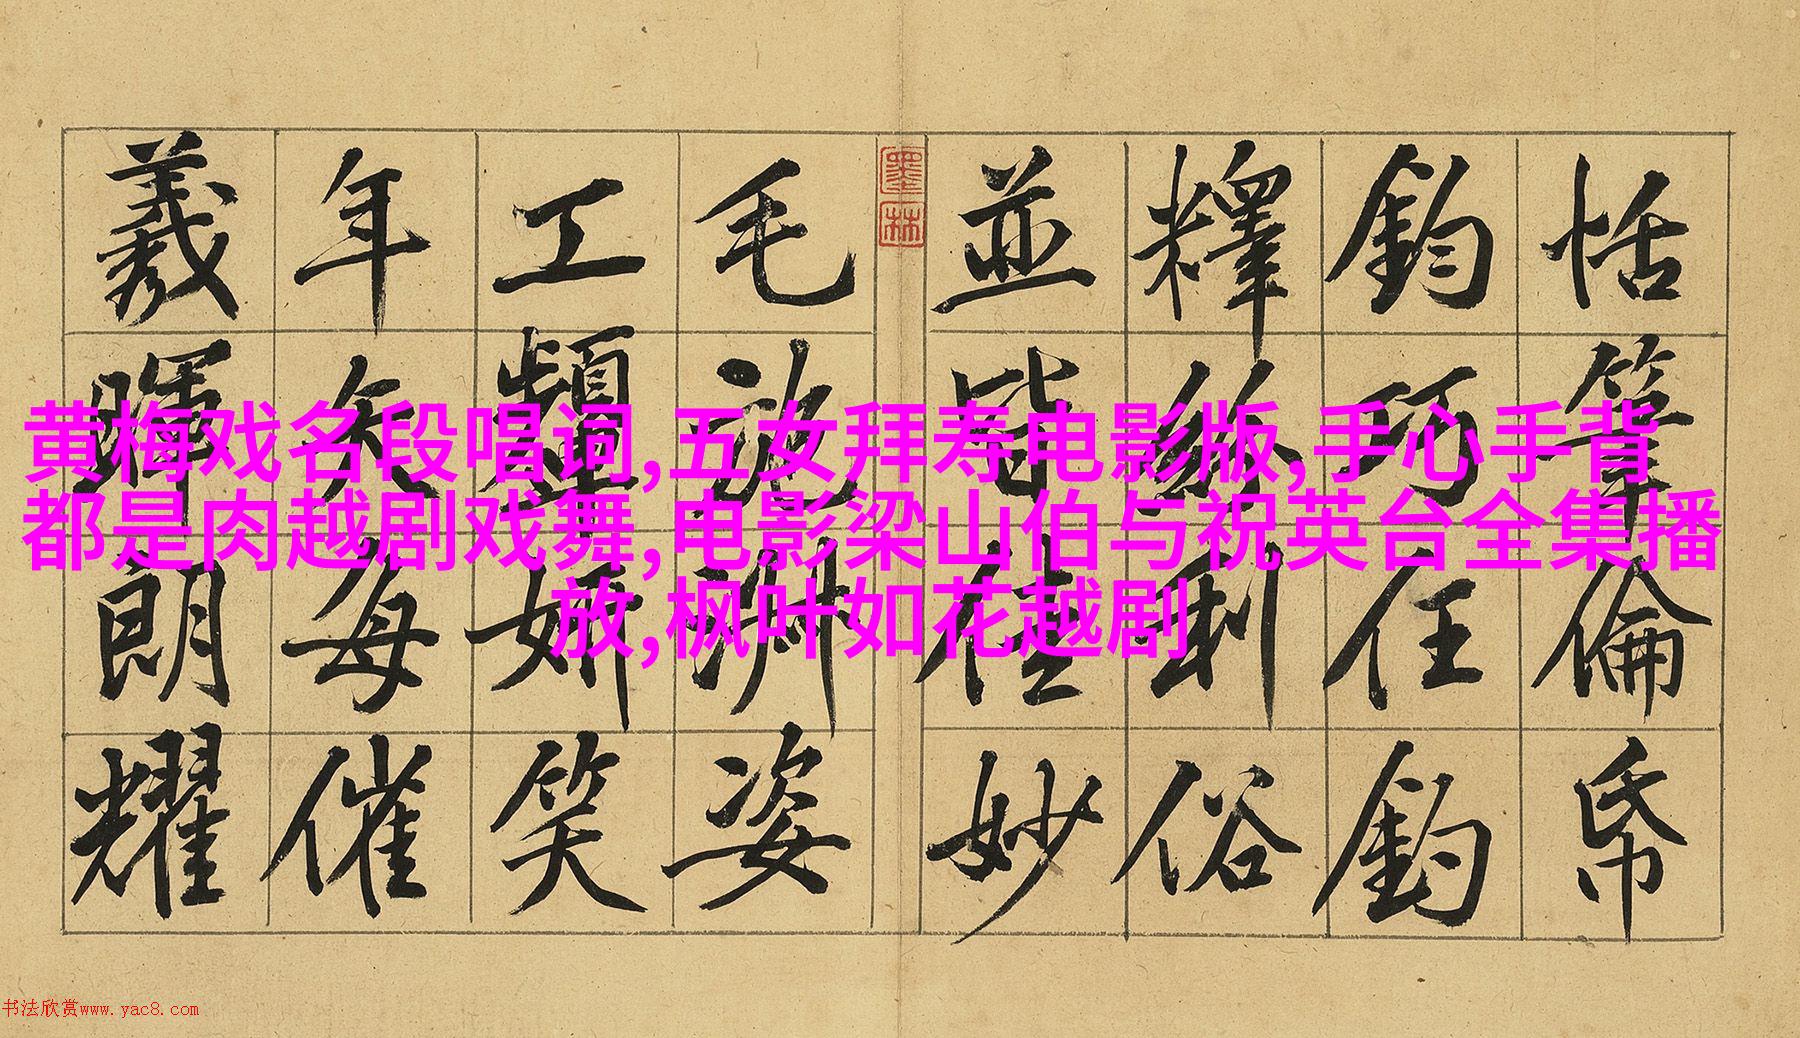 恬筆倫帋
鈞巧任釣
釋紛利俗
並皆佳妙
墨林
毛施淑姿
工顰妍笑
年矢每催
羲暉朗耀
黄梅戏名段唱词,五女拜寿电影版,手心手背
都是肉越剧戏舞,电影梁山伯与祝英台全集播
放,枫叶如花越剧
书法欣赏www.yac8.com